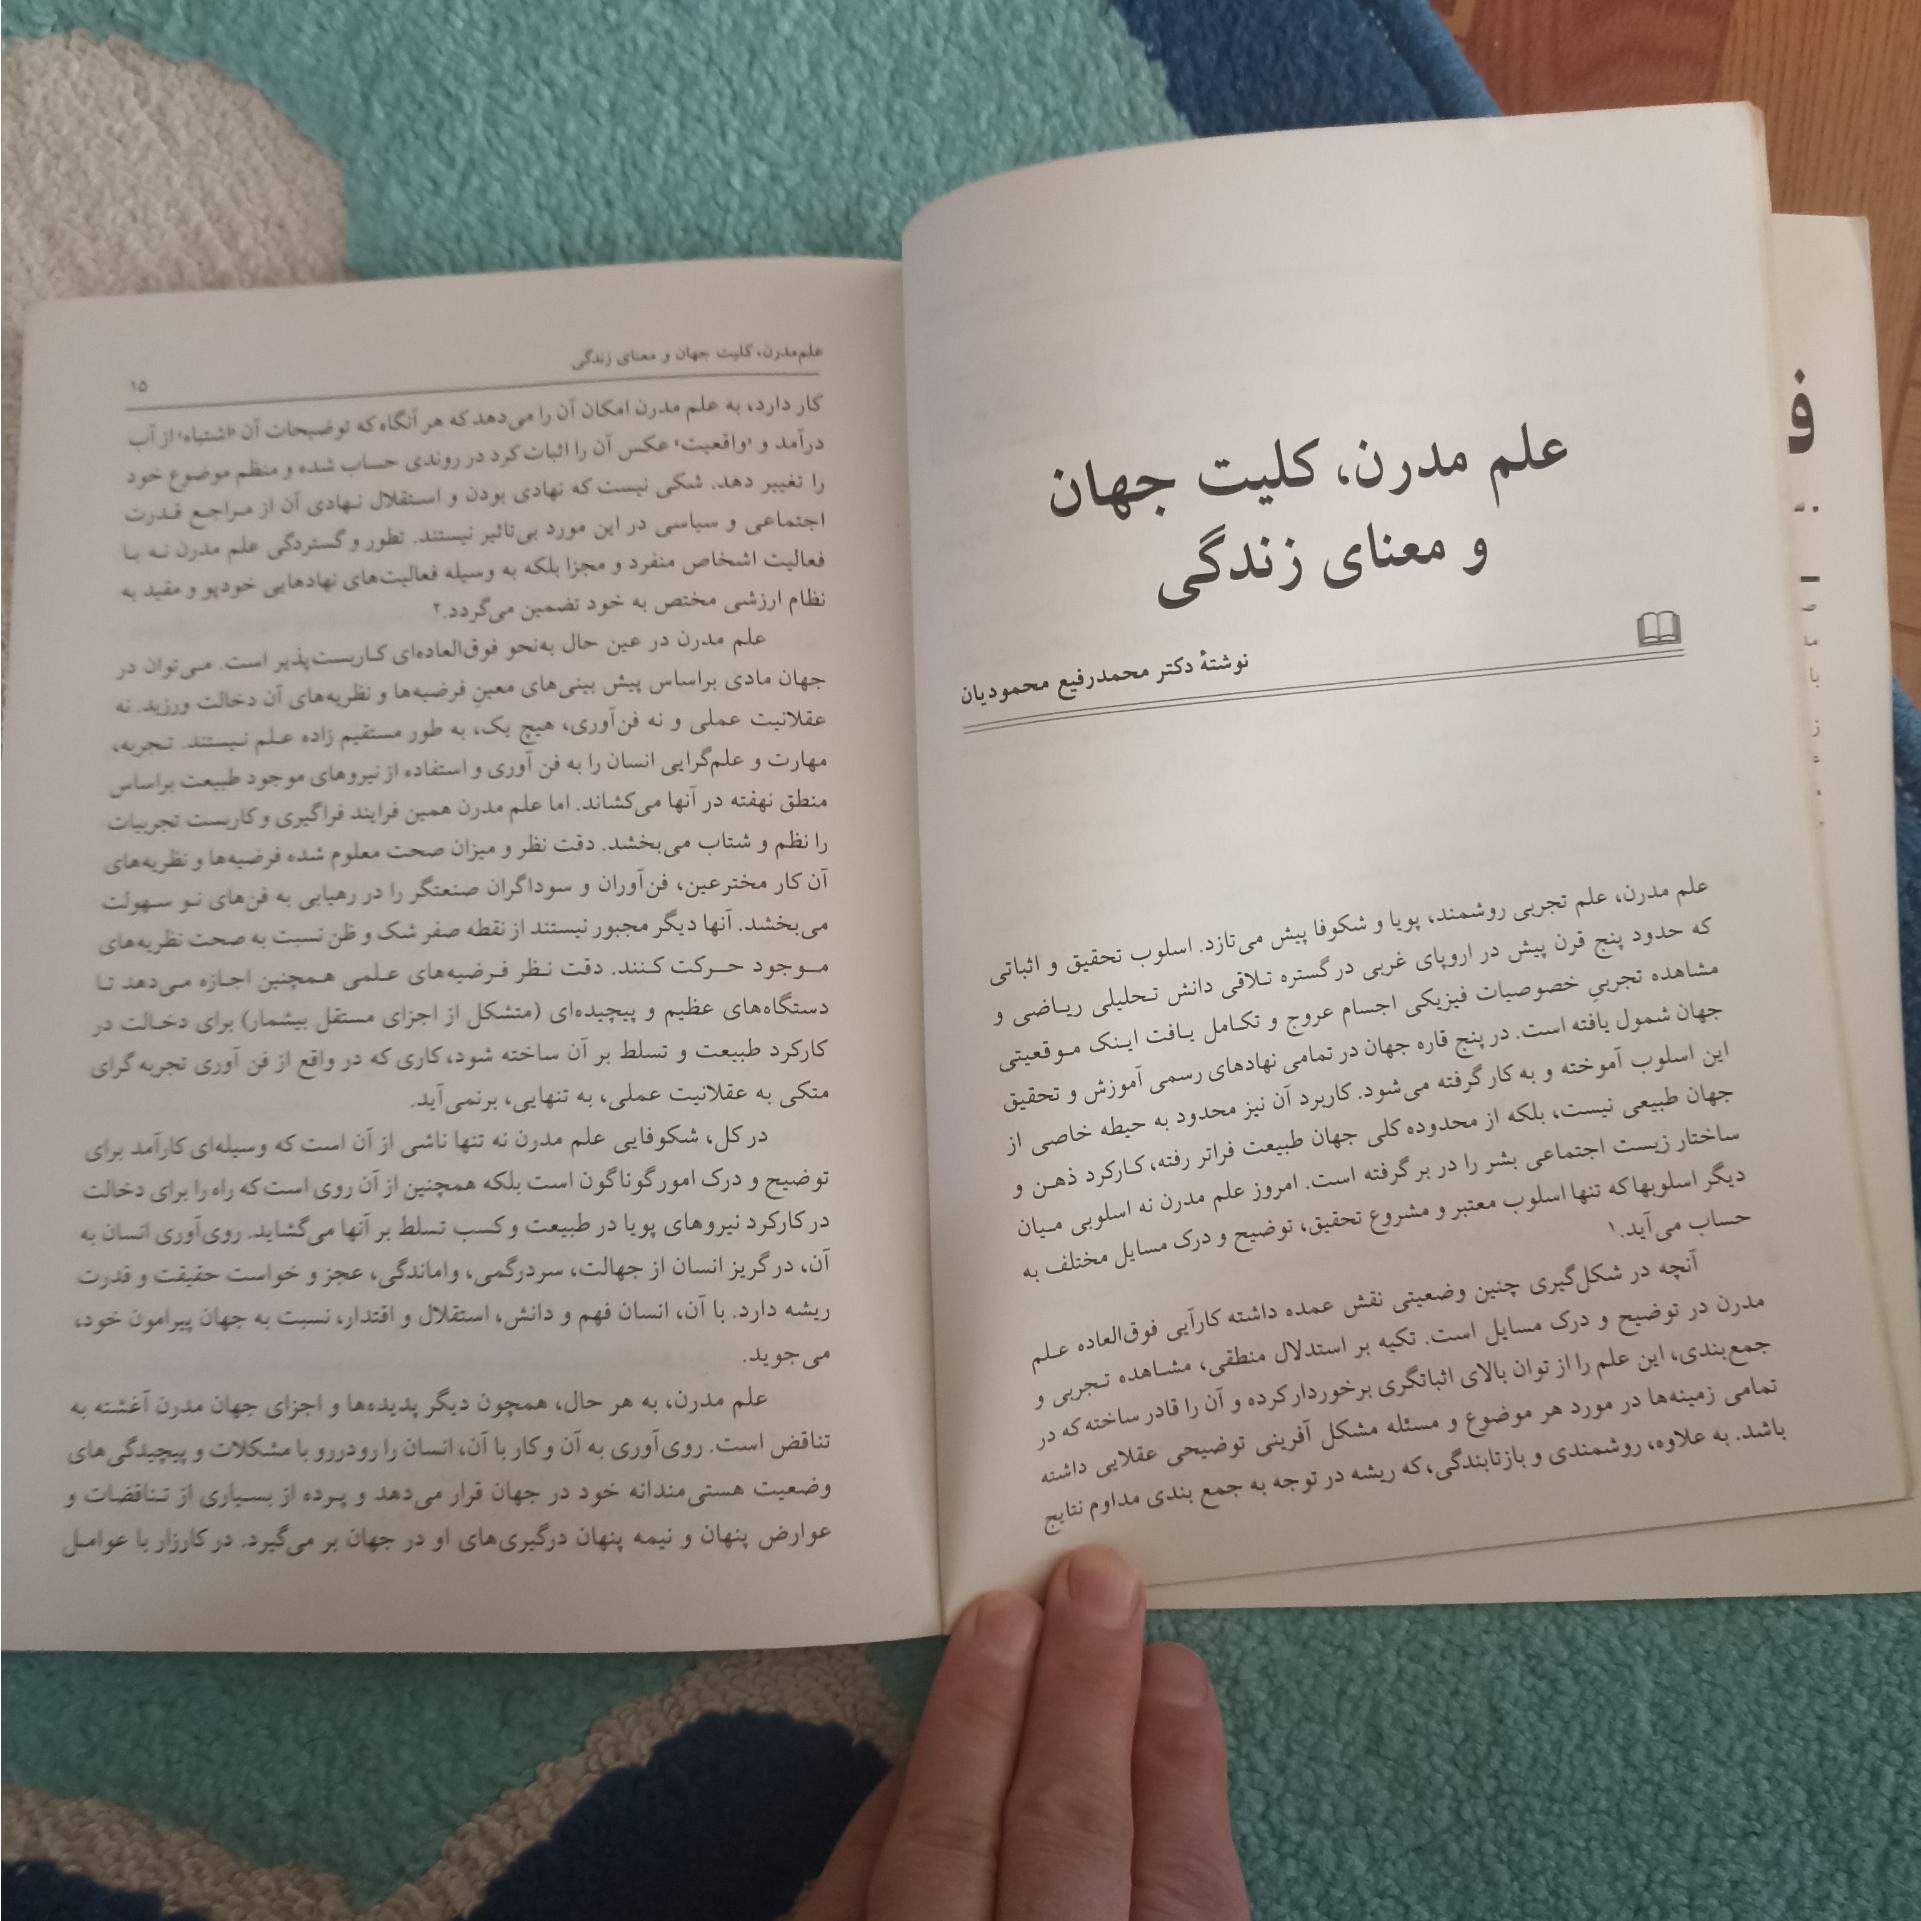 علم مدرن، کلیت جهان
و معنای زندگی
نوشتهٔ دکتر محمدرفیع محمودیان
علم مدرن، علم تجربی روشمند، پویا و شکوفا پیش می‌تازد. اسلوب تحقیق و اثباتی
که حدود پنج قرن پیش در اروپای غربی در گستره تلاقی دانش تحلیلی ریاضی و
مشاهده تجربیِ خصوصیات فیزیکی اجسام عروج و تکامل یافت اینک موقعیتی
جهان شمول یافته است. در پنج قاره جهان در تمامی نهادهای رسمی آموزش و تحقیق
این اسلوب آموخته و به کار گرفته می‌شود. کاربرد آن نیز محدود به حیطه خاصی از
جهان طبیعی نیست، بلکه از محدوده کلی جهان طبیعت فراتر رفته، کارکرد ذهن و
ساختار زیست اجتماعی بشر را در بر گرفته است. امروز علم مدرن نه اسلوبی میان
دیگر اسلوبها که تنها اسلوب معتبر و مشروع تحقیق، توضیح و درک مسایل مختلف به
حساب می‌آید.۱
آنچه در شکل‌گیری چنین وضعیتی نقش عمده داشته کارآیی فوق‌العاده علم
مدرن در توضیح و درک مسایل است. تکیه بر استدلال منطقی، مشاهده تجربی و
جمع‌بندی، این علم را از توان بالای اثباتگری برخوردار کرده و آن را قادر ساخته که در
تمامی زمینه‌ها در مورد هر موضوع و مسئله مشکل آفرینی توضیحی عقلایی داشته
باشد. به علاوه، روشمندی و بازتابندگی، که ریشه در توجه به جمع بندی مداوم نتایج
علم‌مدرن، کلیت جهان و معنای زندگی
۱۵
کار دارد، به علم مدرن امکان آن را می‌دهد که هر آنگاه که توضیحات آن «اشتباه» از آب
درآمد و «واقعیت» عکس آن را اثبات کرد در روندی حساب شده و منظم موضوع خود
را تغییر دهد. شکی نیست که نهادی بودن و استقلال نهادی آن از مراجع قدرت
اجتماعی و سیاسی در این مورد بی‌تاثیر نیستند. تطور و گستردگی علم مدرن نه با
فعالیت اشخاص منفرد و مجزا بلکه به وسیله فعالیت‌های نهادهایی خودپو و مقید به
نظام ارزشی مختص به خود تضمین می‌گردد.۲
علم مدرن در عین حال به‌نحو فوق‌العاده‌ای کاربست‌پذیر است. می‌توان در
جهان مادی براساس پیش بینی‌های معینِ فرضیه‌ها و نظریه‌های آن دخالت ورزید. نه
عقلانیت عملی و نه فن‌آوری، هیچ یک، به طور مستقیم زاده علم نیستند. تجربه،
مهارت و علم‌گرایی انسان را به فن آوری و استفاده از نیروهای موجود طبیعت براساس
منطق نهفته در آنها می‌کشاند. اما علم مدرن همین فرایند فراگیری و کاربست تجربیات
را نظم و شتاب می‌بخشد. دقت نظر و میزان صحت معلوم شده فرضیه‌ها و نظریه‌های
آن کار مخترعین، فن‌آوران و سوداگران صنعتگر را در رهیابی به فن‌های نو سهولت
می‌بخشد. آنها دیگر مجبور نیستند از نقطه صفر شک و ظن نسبت به صحت نظریه‌های
موجود حرکت کنند. دقت نظر فرضیه‌های علمی همچنین اجازه می‌دهد تا
دستگاه‌های عظیم و پیچیده‌ای (متشکل از اجزای مستقل بیشمار) برای دخالت در
کارکرد طبیعت و تسلط بر آن ساخته شود، کاری که در واقع از فن آوری تجربه گرای
متکی به عقلانیت عملی، به تنهایی، برنمی‌آید.
در کل، شکوفایی علم مدرن نه تنها ناشی از آن است که وسیله‌ای کارآمد برای
توضیح و درک امور گوناگون است بلکه همچنین از آن روی است که راه را برای دخالت
در کارکرد نیروهای پویا در طبیعت و کسب تسلط بر آنها می‌گشاید. روی‌آوری انسان به
آن، در گریز انسان از جهالت، سردرگمی، واماندگی، عجز و خواست حقیقت و قدرت
ریشه دارد. با آن، انسان فهم و دانش، استقلال و اقتدار، نسبت به جهان پیرامون خود،
می‌جوید.
علم مدرن، به هر حال، همچون دیگر پدیده‌ها و اجزای جهان مدرن آغشته به
تناقض است. روی‌آوری به آن و کار با آن، انسان را رودررو با مشکلات و پیچیدگی‌های
وضعیت هستی‌مندانه خود در جهان قرار می‌دهد و پرده از بسیاری از تناقضات و
عوارض پنهان و نیمه پنهان درگیری‌های او در جهان بر می‌گیرد. در کارزار با عوامل